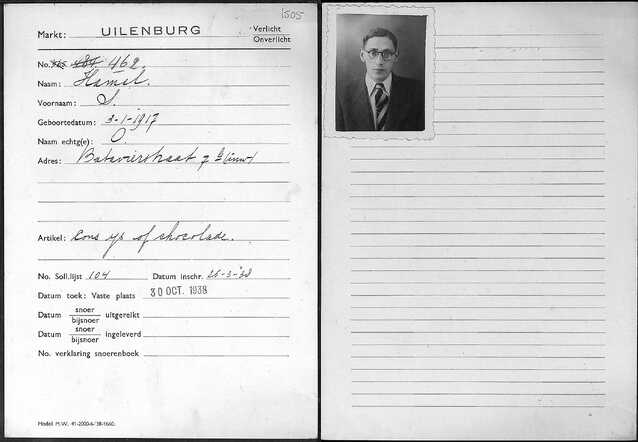 1505
Markt: UILENBURG Verlicht
Onverlicht
No. 465 484 462.
Naam: Hamel.
Voornaam: S.
Geboortedatum: 3-1-1917
Naam echtg(e): O.
Adres: Batavierstraat 7
Artikel: Cons ys of chocolade.
No. Soll.lijst 104 Datum inschr. 26-3-'38
Datum toek: Vaste plaats 30 OCT. 1938
Datum snoer/bijsnoer uitgereikt
Datum snoer/bijsnoer ingeleverd
No. verklaring snoerenboek
Model M.W. 41-2000-6-'38-1660.